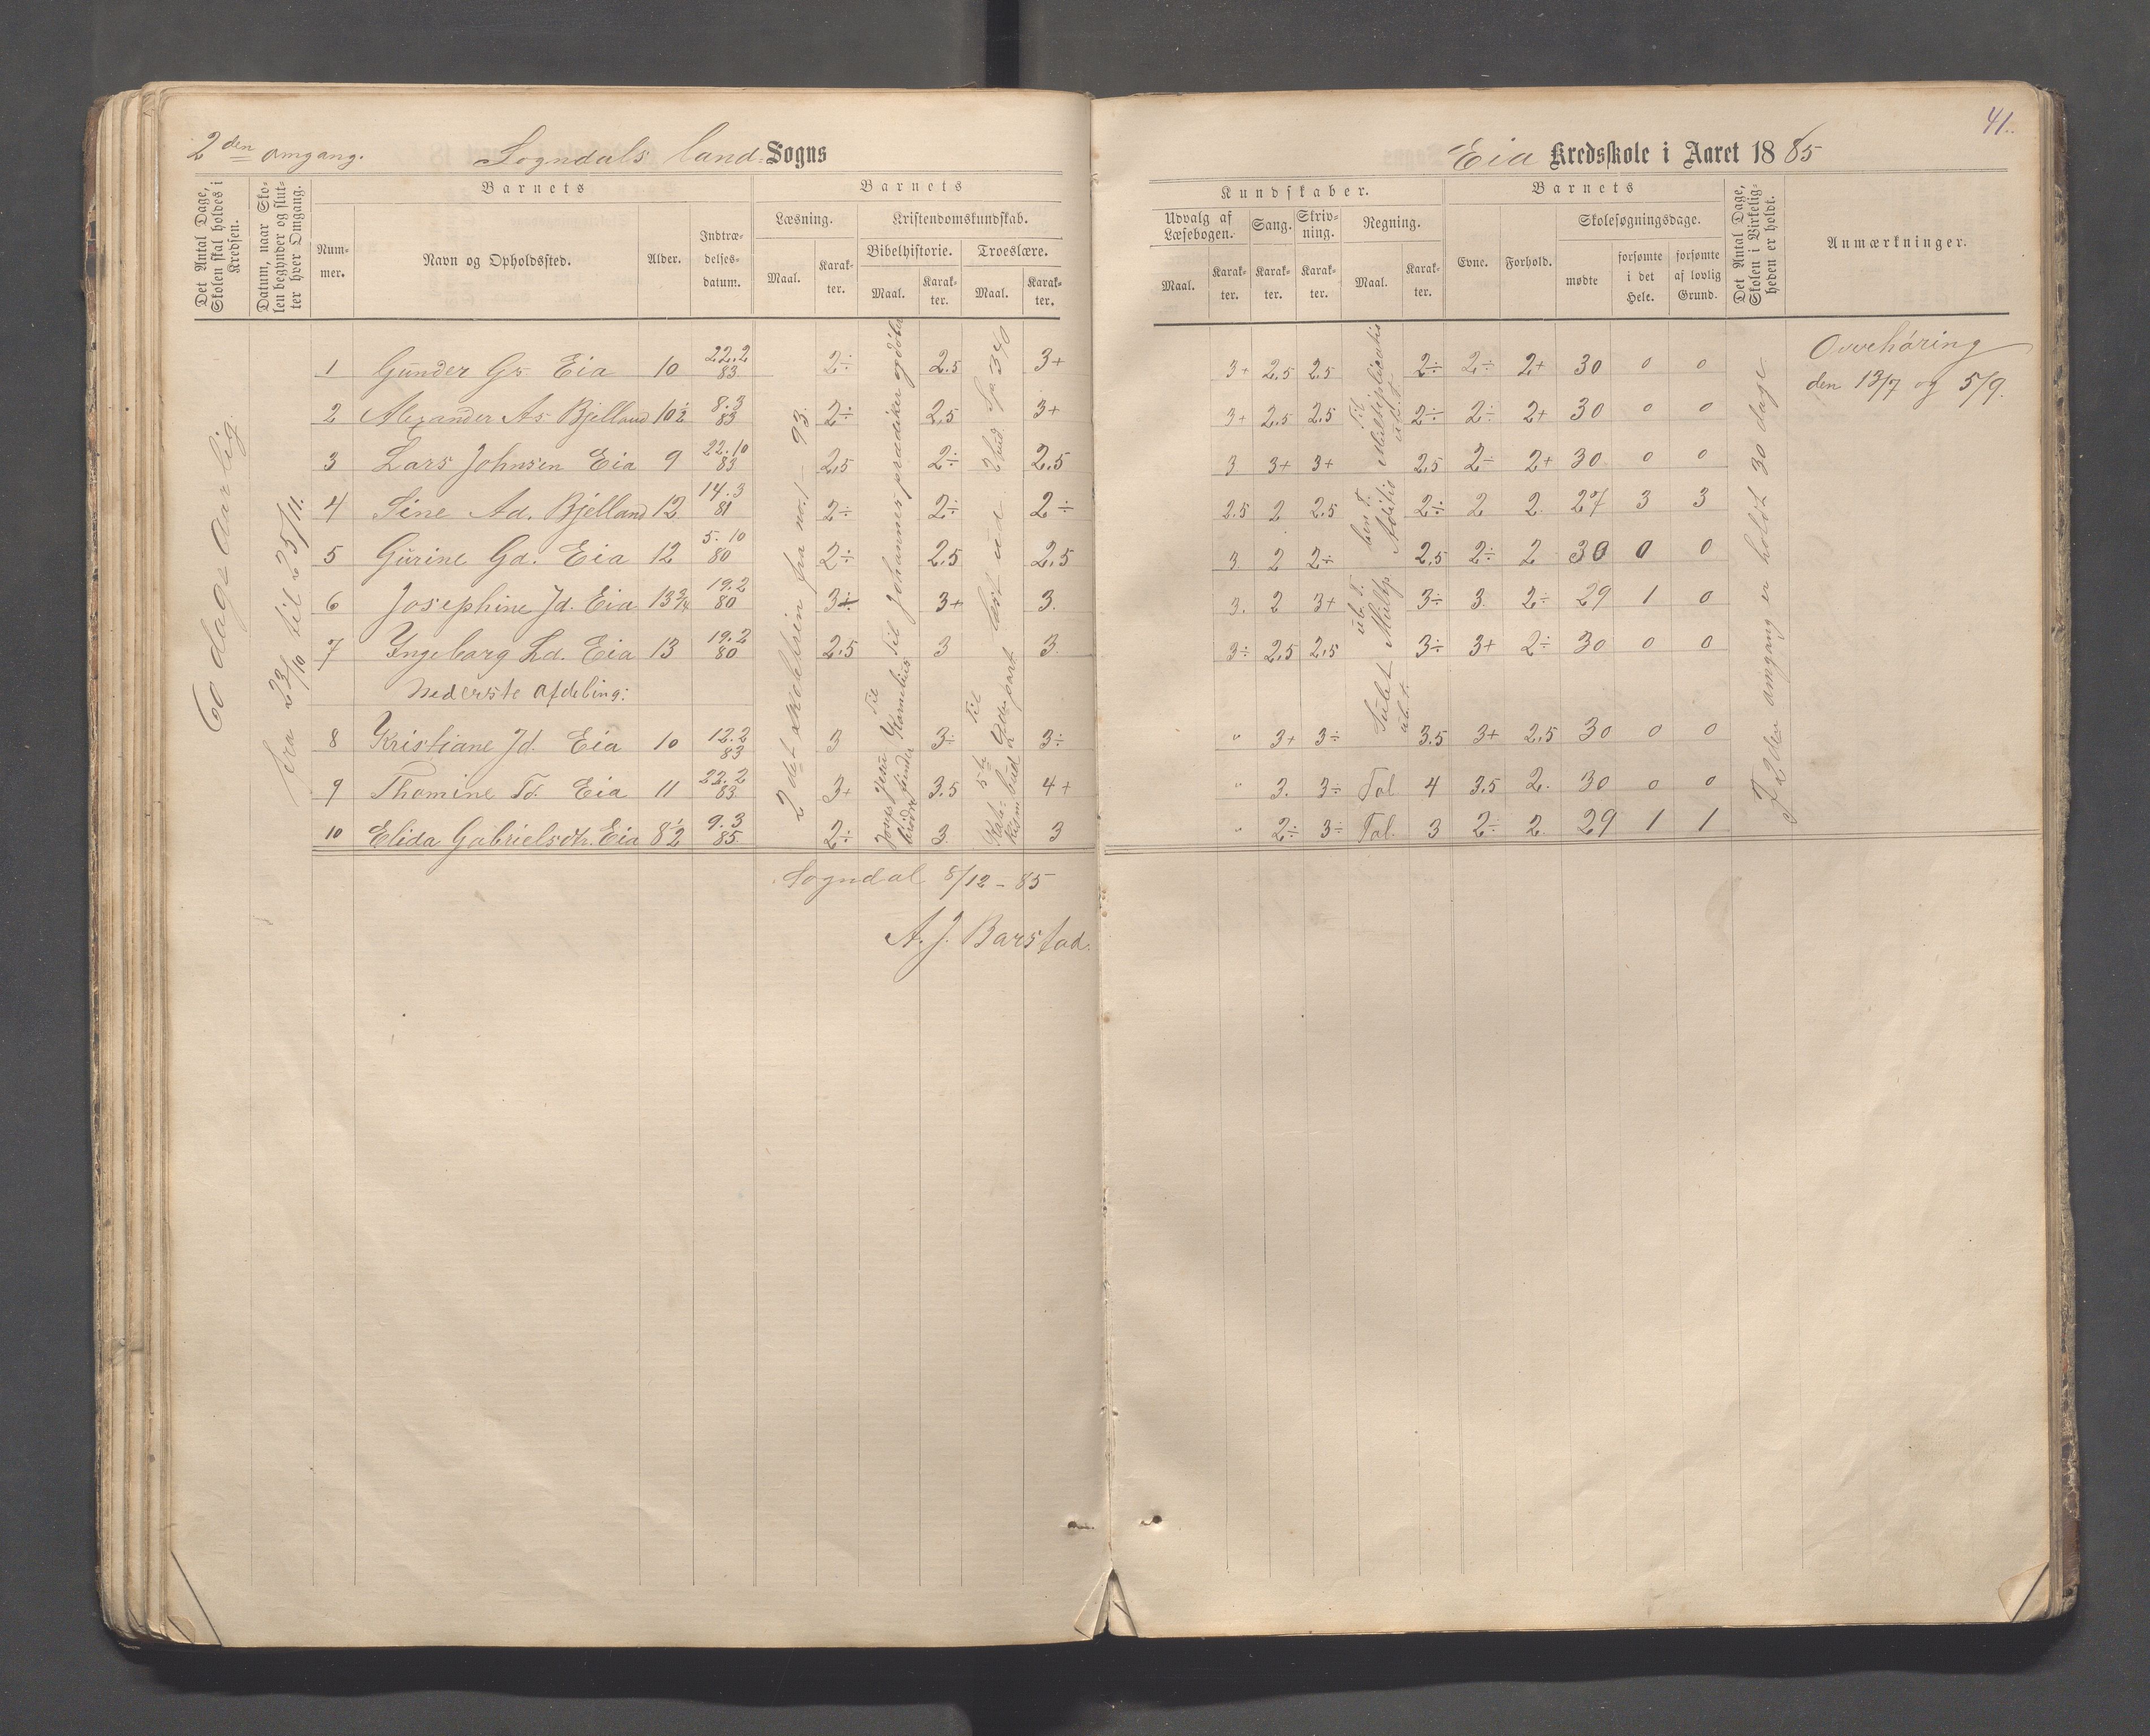 41.
2den omgang. Sogndals land= Sogns
Eia Kredsskole i Aaret 1885
Det Antal Dage, Skolen skal holdes i Kredsen.
Datum, naar Skolen begynder og slutter hver Omgang.
Barnets
Nummer.
Navn og Opholdssted.
Alder.
Indtrædelsesdatum.
Barnets
Læsning.
Maal.
Karakter.
Kristendomskundskab.
Bibelhistorie.
Maal.
Karakter.
Troeslære.
Maal.
Karakter.
Kundskaber.
Udvalg af Læsebogen.
Maal.
Karakter.
Sang.
Karakter.
Skrivning.
Karakter.
Regning.
Maal.
Karakter.
Barnets
Evne.
Forhold.
Skolesøgningsdage.
mødte
forsømte i det Hele.
forsømte af lovlig Grund.
Det Antal Dage, Skolen i Virkeligheden er holdt.
Anmærkninger.
60 dage aarlig.
fra 23/10 til 25/11.
2det skoletrin fra no. 1 - 93.
Til Johannes prædiker og døber
1 Gunder Gs. Eia 10 22.2 83 2÷ 2.5 3+ 3+ 2,5 2,5 2÷ 2÷ 2+ 30 0 0
2 Alexander As Bjelland 10½ 8.3 83 2÷ 2,5 3+ 3+ 2,5 2,5 2÷ 2÷ 2+ 30 0 0
3 Lars Johnsen Eia 9 22.10 83 2,5 2÷ 2,5 3 3+ 3+ 2,5 2÷ 2+ 30 0 0
4 Sine Ad. Bjelland 12 14.3 81 2÷ 2÷ 2÷ 2.5 2 2.5 2÷ 2 2. 27 3 3
5 Gurine Gd. Eia 12 5.10 80 2÷ 2,5 2,5 3 2 2÷ 2,5 2÷ 2 30 0 0
6 Josephine Jd. Eia 13¾ 19.2 80 3÷ 3+ 3. 3. 2 3+ 3÷ 3. 2÷ 29 1 0
7 Ingeborg Ld. Eia 13 19.2 80 2,5 3 3. 3÷ 2,5 2,5 3÷ 3+ 2÷ 30 0 0
Nederste afdeling:
8 Kristiane Jd. Eia 10 12.2 83 3 3÷ 3÷ " 3+ 3÷ 3.5 3+ 2,5 30 0 0
9 Thomine Td. Eia 11 22.2 83 3+ 3.5 4+ " 3. 3÷ Tal 4 3.5 2. 30 0 0
10 Elida Gabrielsdtr. Eia 8½ 9.3 85 2÷ 3 3 " 2÷ 3÷ Tal. 3 2÷ 2. 29 1 1
I 2den omgang er holdt 30 dage
Ovvehøring
den 13/7 og 5/9.
Sogndal 8/12 - 85
A. J. Barstad.